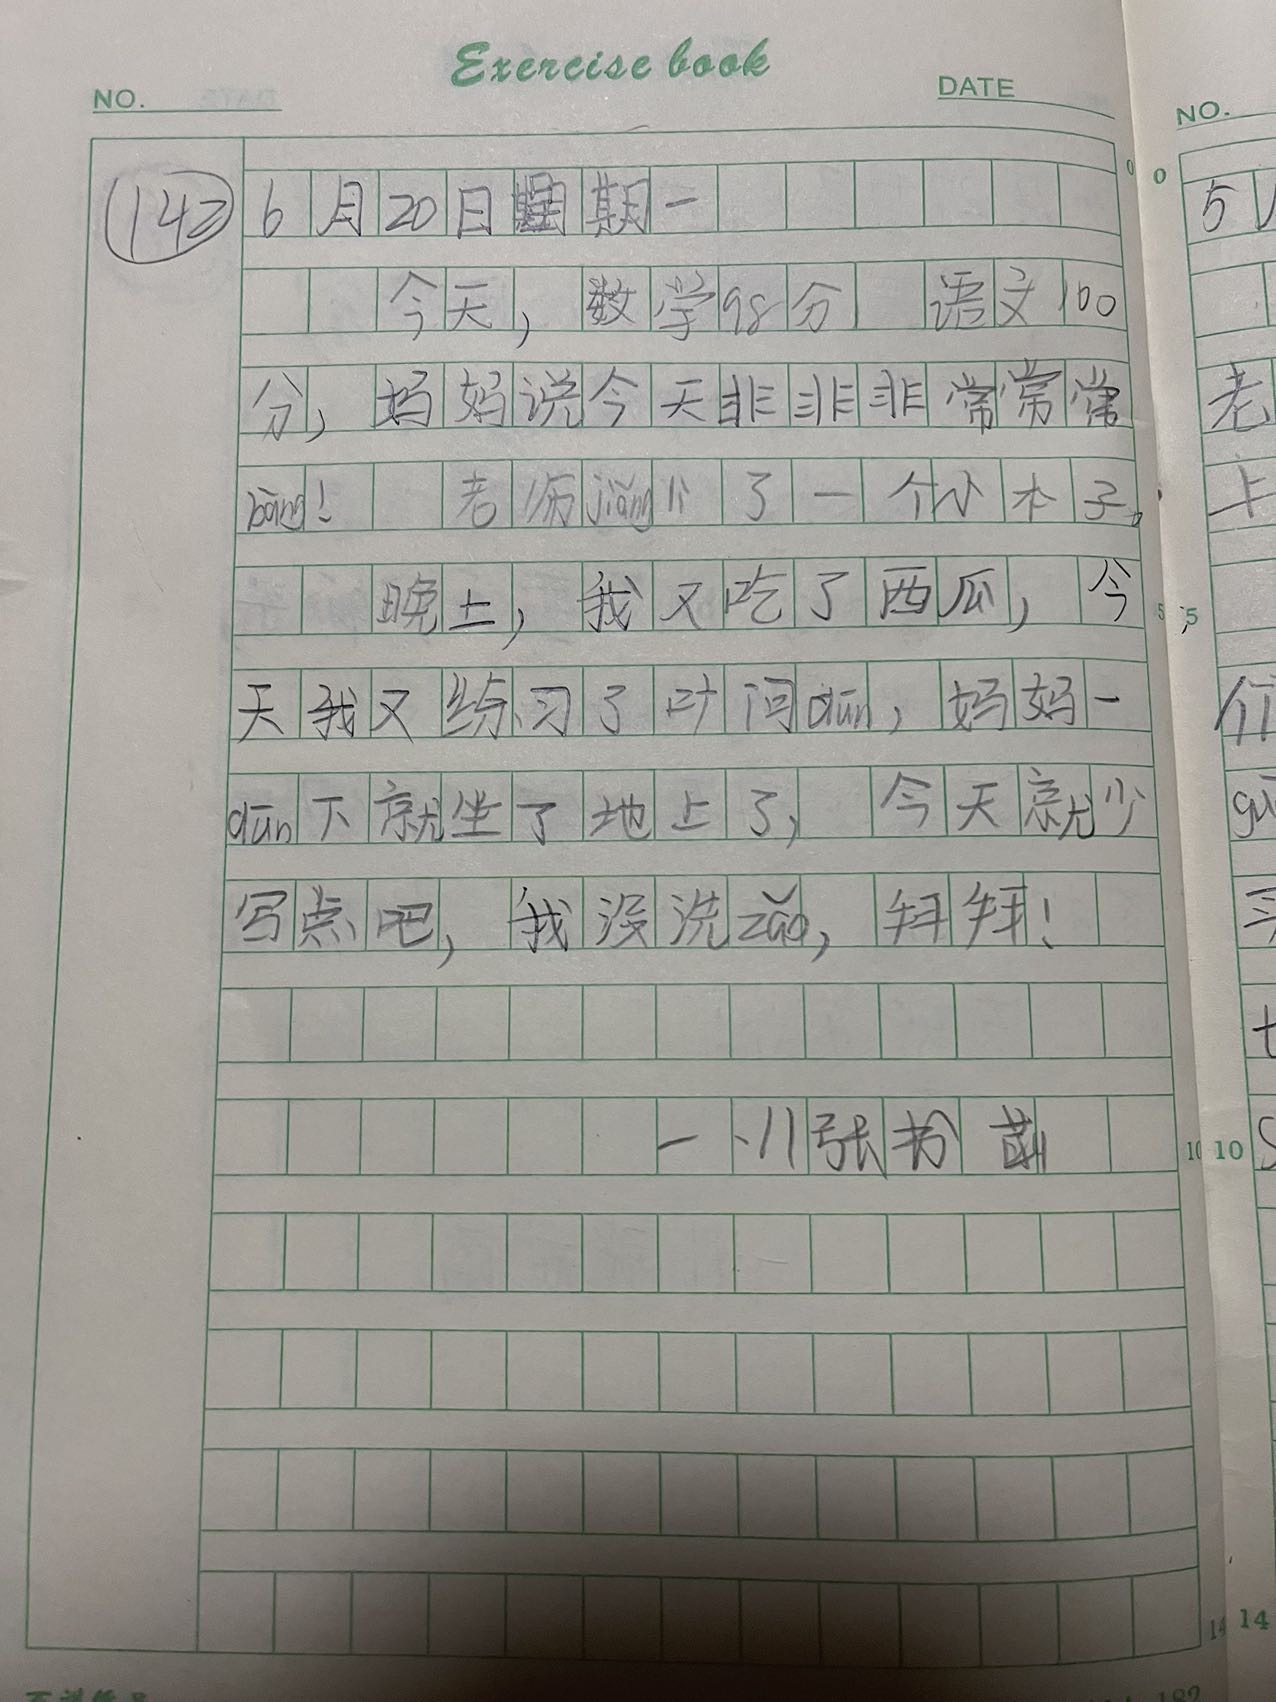 Exercise book
NO.
DATE
NO.
142
6月20日星期一
今天，数学98分 语文100
分，妈妈说今天非非非常常常
bàng！ 老师jiǎng了一个小本子。
晚上，我又吃了西瓜，今
天我又练习了叶问dūn，妈妈一
dūn下就坐了地上了，今天就少
写点吧，我没洗zǎo，拜拜！
一小张
0
5
10
14
0
5
10
14
5
老
上